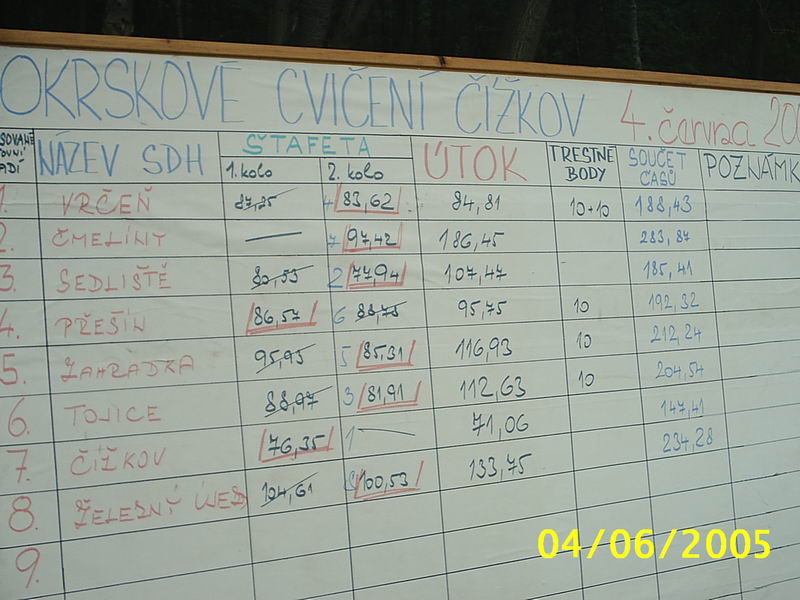 OKRSKOVÉ CVIČENÍ ČÍŽKOV 4. června 200
NÁZEV SDH ŠTAFETA ÚTOK TRESTNÉ BODY SOUČET ČASŮ POZNÁMK
1. kolo 2. kolo
1. VRČEŇ 87,25 4 83,62 84,81 10+10 188,43
2. ČMELÍNY — 7 97,42 186,45 283,87
3. SEDLIŠTĚ 80,53 2 77,94 107,47 185,41
4. PŘEŠÍN 86,57 6 88,75 95,75 10 192,32
5. ZAHRÁDKA 95,95 5 85,31 116,93 10 212,24
6. TOJICE 88,97 3 81,91 112,63 10 204,54
7. ČÍŽKOV 76,35 1 — 71,06 147,41
8. ŽELEZNÝ ÚJEZD 104,61 8 100,53 133,75 234,28
9.
04/06/2005